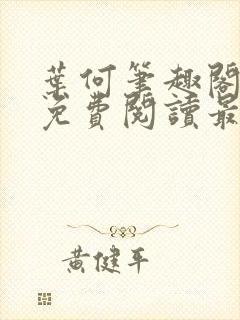 葉何筆趣閣
免費閱讀最
黃健平